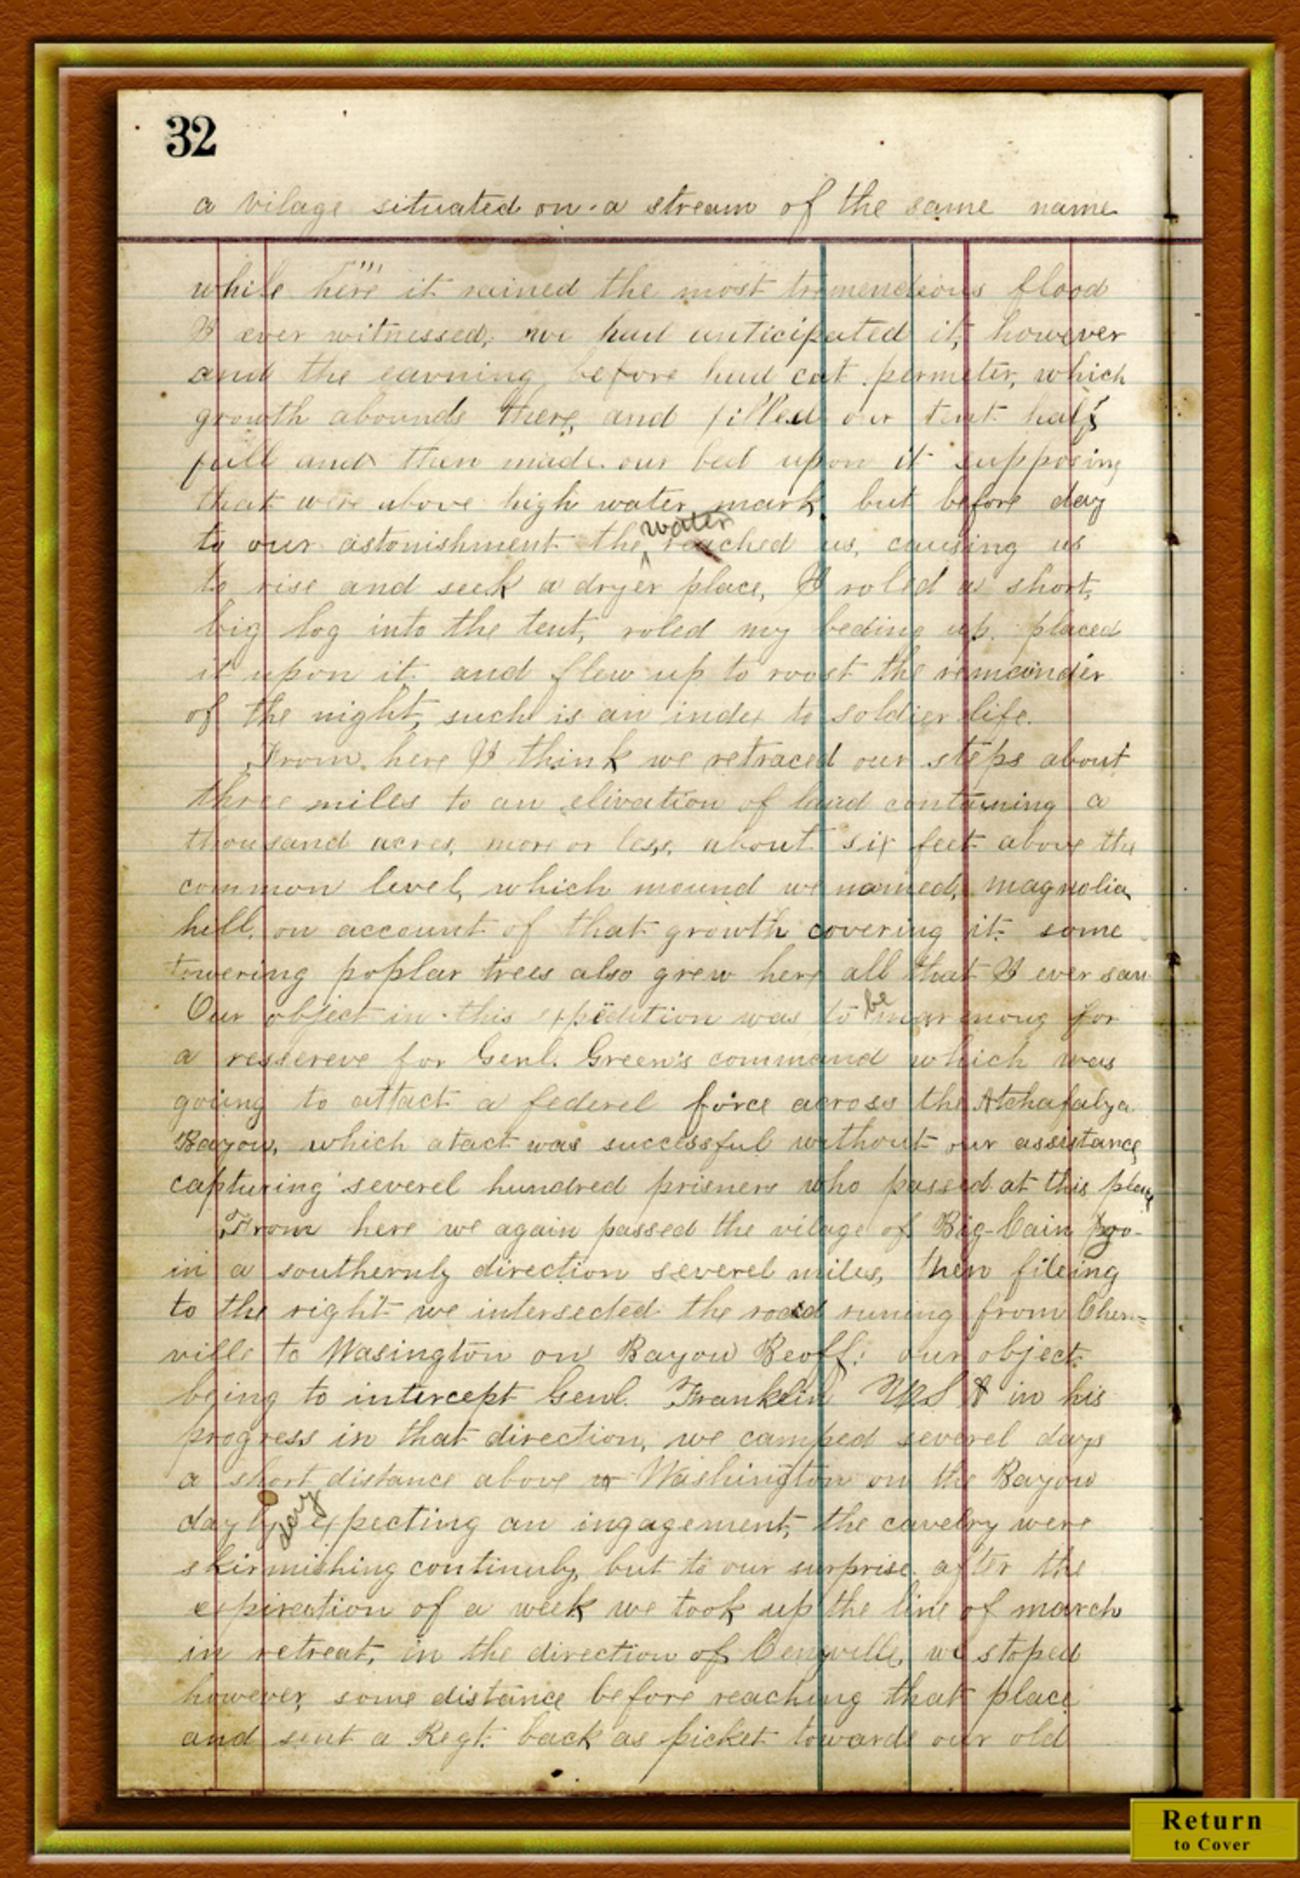 32
a vilage situated on a stream of the same name
while here it rained the most tremendious flood
I ever witnessed, we had anticipated it, however
and the eavning before had cut permeter, which
growth abounds there, and filled our tent half
full and then made our bed upon it supposing
that were above high water mark, but before day
water
to our astonishment the reached us, causing us
to rise and seek a dryer place, I roled a short,
big log into the tent, roled my beding up placed
it upon it and flew up to roost the remainder
of the night, such is an index to soldier life.
From here I think we retraced our steps about
three miles to an elivation of land containing a
thousand acres, more or less, about six feet above the
common level, which mound we named, magnolia
hill, on account of that growth covering it some
towering poplar trees also grew here all that I ever saw
be
Our object in this expedition was to near enoug for
a ressereve for Genl. Green's command which was
going to attact a federel force across the Atchafalya
Bayou, which atact was successful without our assistance,
capturing severel hundred prisners who passed at this place
From here we again passed the vilage of Big Cain go-
in a southernly direction severel miles, then fileing
to the right we intersected the road runing from Chen=
ville to Wasington on Bayou Beoff: our object
being to intercept Genl. Franklin USA in his
progress in that direction, we camped severel days
a short distance above Washington on the Bayou
day by day expecting an ingagement, the cavelry were
skirmishing continuly, but to our surprise after the
expireation of a week we took up the line of march
in retreat, in the direction of we stoped
however, some distance before reaching that place
and sent a Regt. back as picket towards our old
Return
to Cover